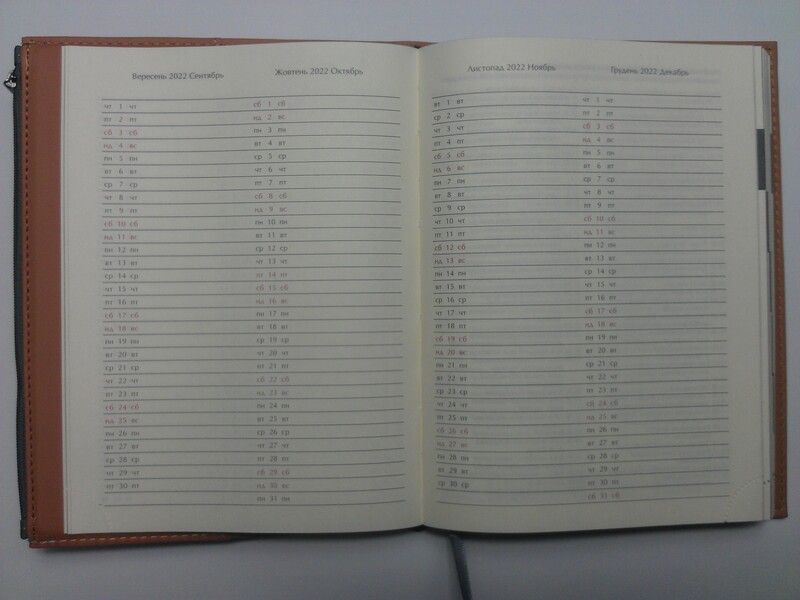 Вересень 2022 Сентябрь
чт 1 чт
пт 2 пт
сб 3 сб
нд 4 вс
пн 5 пн
вт 6 вт
ср 7 ср
чт 8 чт
пт 9 пт
сб 10 сб
нд 11 вс
пн 12 пн
вт 13 вт
ср 14 ср
чт 15 чт
пт 16 пт
сб 17 сб
нд 18 вс
пн 19 пн
вт 20 вт
ср 21 ср
чт 22 чт
пт 23 пт
сб 24 сб
нд 25 вс
пн 26 пн
вт 27 вт
ср 28 ср
чт 29 чт
пт 30 пт
Жовтень 2022 Октябрь
сб 1 сб
нд 2 вс
пн 3 пн
вт 4 вт
ср 5 ср
чт 6 чт
пт 7 пт
сб 8 сб
нд 9 вс
пн 10 пн
вт 11 вт
ср 12 ср
чт 13 чт
пт 14 пт
сб 15 сб
нд 16 вс
пн 17 пн
вт 18 вт
ср 19 ср
чт 20 чт
пт 21 пт
сб 22 сб
нд 23 вс
пн 24 пн
вт 25 вт
ср 26 ср
чт 27 чт
пт 28 пт
сб 29 сб
нд 30 вс
пн 31 пн
Листопад 2022 Ноябрь
вт 1 вт
ср 2 ср
чт 3 чт
пт 4 пт
сб 5 сб
нд 6 вс
пн 7 пн
вт 8 вт
ср 9 ср
чт 10 чт
пт 11 пт
сб 12 сб
нд 13 вс
пн 14 пн
вт 15 вт
ср 16 ср
чт 17 чт
пт 18 пт
сб 19 сб
нд 20 вс
пн 21 пн
вт 22 вт
ср 23 ср
чт 24 чт
пт 25 пт
сб 26 сб
нд 27 вс
пн 28 пн
вт 29 вт
ср 30 ср
Грудень 2022 Декабрь
чт 1 чт
пт 2 пт
сб 3 сб
нд 4 вс
пн 5 пн
вт 6 вт
ср 7 ср
чт 8 чт
пт 9 пт
сб 10 сб
нд 11 вс
пн 12 пн
вт 13 вт
ср 14 ср
чт 15 чт
пт 16 пт
сб 17 сб
нд 18 вс
пн 19 пн
вт 20 вт
ср 21 ср
чт 22 чт
пт 23 пт
сб 24 сб
нд 25 вс
пн 26 пн
вт 27 вт
ср 28 ср
чт 29 чт
пт 30 пт
сб 31 сб